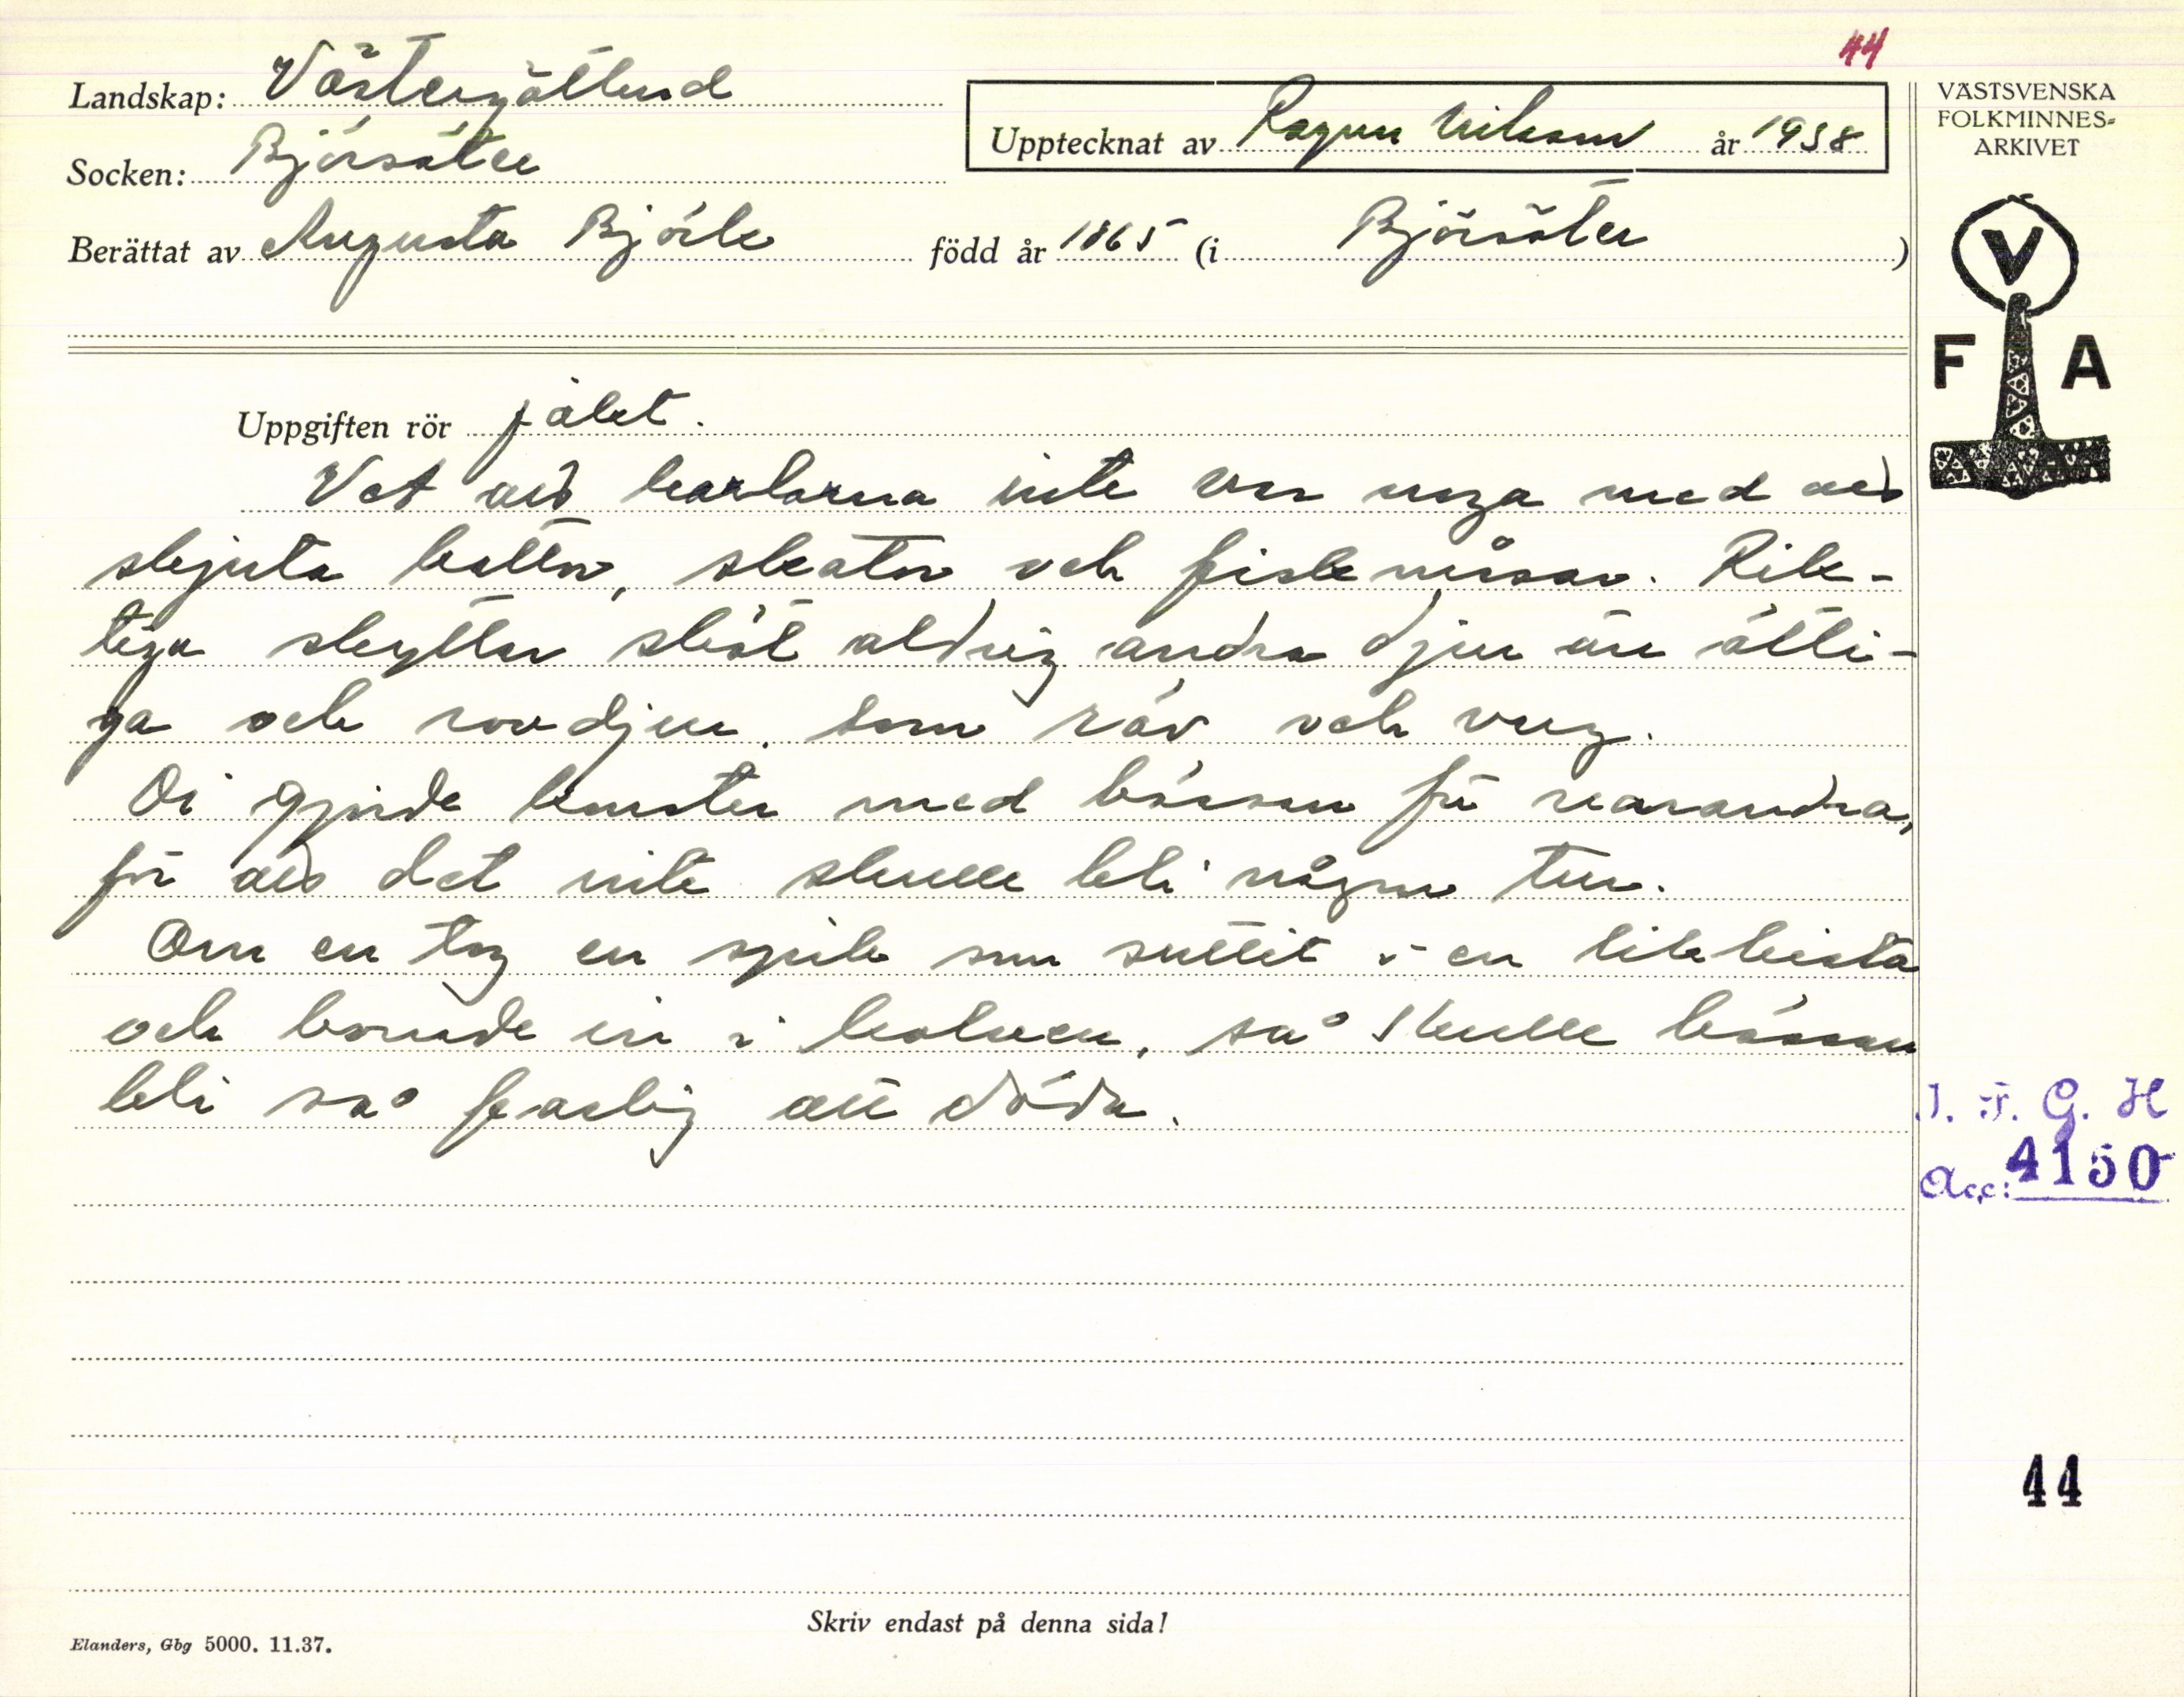 44
Landskap: Västergötland
Socken: Björsäter
Upptecknat av Ragnar Nilsson år 1938
Berättat av Augusta Björk född år 1865 (i Björsäter)
VÄSTSVENSKA
FOLKMINNES-
ARKIVET
V
F A
Uppgiften rör jakt.
Vet att karlarna inte var noga med att
skjuta kattor, skator och fiskmåsar. Rik-
tiga skyttar sköt aldrig andra djur än ätli-
ga och rovdjur, som räv och varg.
Di gjorde konster med bössan för varandra,
för att det inte skulle bli någon tur.
Om en tog en spik som suttit i en likkista
och borrade in i kolven, så skulle bössan
bli så farlig att döda.
I. F. G. H
Acc: 4150
44
Skriv endast på denna sida!
Elanders, Gbg 5000. 11.37.